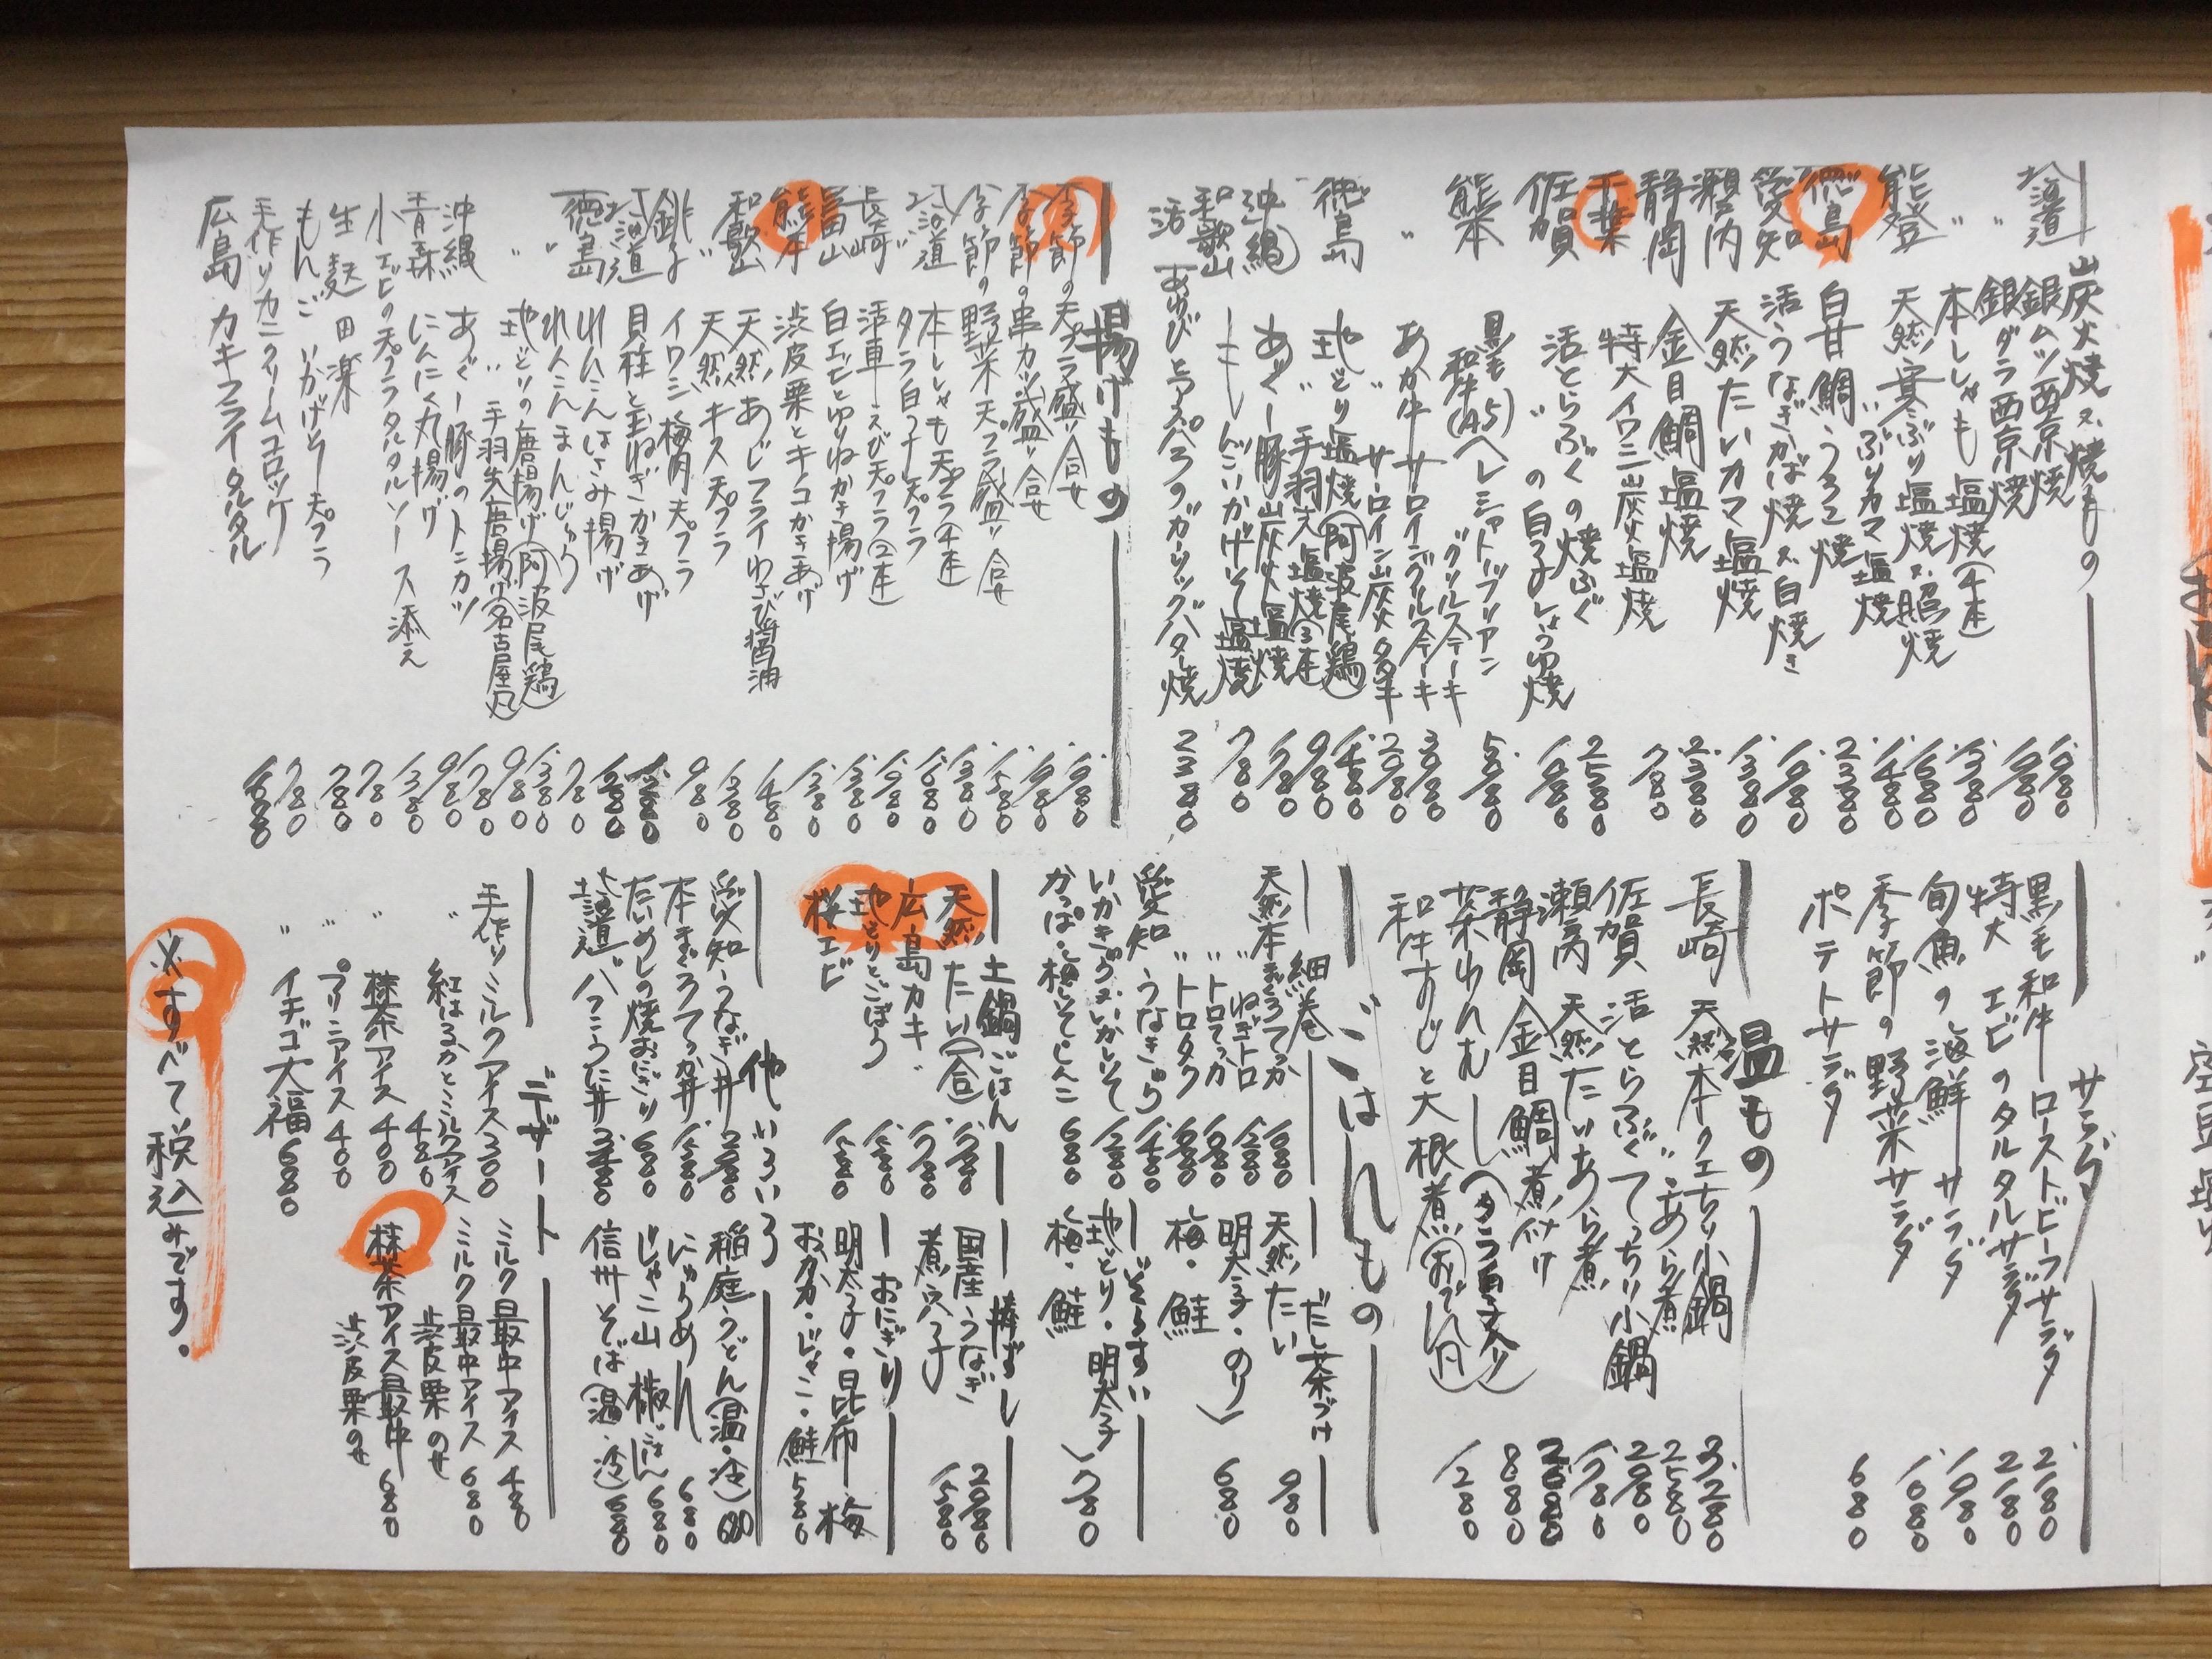 炭火焼又焼もの
北海道 銀ムツ西京焼 1.980
〃 銀ダラ西京焼 1.980
〃 本ししゃも塩焼(4本) 1.380
能登 天然寒ぶり塩焼又照焼 1.680
〃 〃 ぶりカマ塩焼 1.480
徳島 白甘鯛うろこ焼 2.380
愛知 活うなぎかば焼又白焼き
瀬戸内 天然たいカマ塩焼 1.380
静岡 金目鯛塩焼 2.380
千葉 特大イワシ炭火塩焼 780
佐賀 活とらふぐの焼ふぐ 2.580
〃 の白子しょうゆ焼
熊本 黒毛和牛(A5)ヘレシャトーブリアン
グリルステーキ
あか牛サーロイングリルステーキ
〃 サーロイン炭火タタキ
徳島 地どり塩焼(阿波尾鶏) 1.480
〃 手羽先塩焼(3本) 980
沖縄 あぐー豚炭火塩焼 1.780
和歌山 もんごいかげそ塩焼 780
活 あわびとアスパラのガーリックバター焼 2.380
揚げもの
季節の天プラ盛り合せ 1.980
季節の串カツ盛り合せ 1.980
季節の野菜天プラ盛り合せ 1.580
北海道 本ししゃも天プラ(4本) 1.380
〃 タラ白子天プラ 1.680
長崎 活車えび天プラ(2本) 1.980
富山 白エビとゆりねかき揚げ 1.380
熊本 渋皮栗とキノコかきあげ 1.380
和歌山 天然あじフライわさび醤油 1.480
〃 天然キス天プラ 1.380
銚子 イワシ梅肉天プラ 980
北海道 貝柱と玉ねぎかきあげ 1.280
徳島 れんこんはさみ揚げ
〃 れんこんまんじゅう 780
〃 地どりの唐揚げ(阿波尾鶏) 1.380
〃 〃 手羽先唐揚げ(名古屋風) 980
沖縄 あぐー豚のトンカツ 1.780
青森 にんにく丸揚げ 980
小エビの天プラタルタルソース添え 1.380
生麩田楽 780
もんごいかげそ天プラ 780
手作りカニクリームコロッケ 780
広島 カキフライタルタル
サラダ
黒毛和牛ローストビーフサラダ 2.180
特大エビのタルタルサラダ 2.180
旬魚の海鮮サラダ 1.980
季節の野菜サラダ 1.680
ポテトサラダ 680
温もの
長崎 天然本クエちり小鍋 3.280
〃 あら煮 2.580
佐賀 活とらふぐてっちり小鍋 2.980
瀬戸内 天然たいあら煮 1.780
静岡 金目鯛煮付け
茶わんむし(タラ白子入り) 880
和牛すじと大根煮(おでん風) 1.280
ごはんもの
細巻
天然本まぐろてっか 1.680
〃 ねぎトロ 1.280
〃 トロてっか
〃 トロタク
愛知 うなきゅう 1.480
いかキムチ・いかしそ 1.280
かっぱ・梅しそ・しんこ 680
だし茶づけ
天然たい 980
明太子・のり
梅・鮭
680
ぞうすい
地どり・明太子
梅・鮭
780
土鍋ごはん
天然たい(一合)
広島カキ 1.780
地どりとごぼう 1.580
桜エビ 1.580
棒ずし
国産うなぎ 2.980
煮穴子 1.580
おにぎり
明太子・昆布・梅
おかか・じゃこ・鮭 580
他いろいろ
愛知うなぎ丼
本まぐろてっか丼
たいめしの焼おにぎり 680
北海道 バフンうに丼
稲庭うどん(温・冷)
にゅうめん 680
じゃこ山椒ごはん 680
信州そば(温・冷) 680
デザート
手作りミルクアイス 300
〃 紅はるかとミルクアイス 480
〃 抹茶アイス 400
〃 プリンアイス 400
〃 イチゴ大福 680
ミルク最中アイス 480
ミルク最中アイス 680
渋皮栗のせ
抹茶アイス最中 680
渋皮栗のせ
※すべて税込みです。